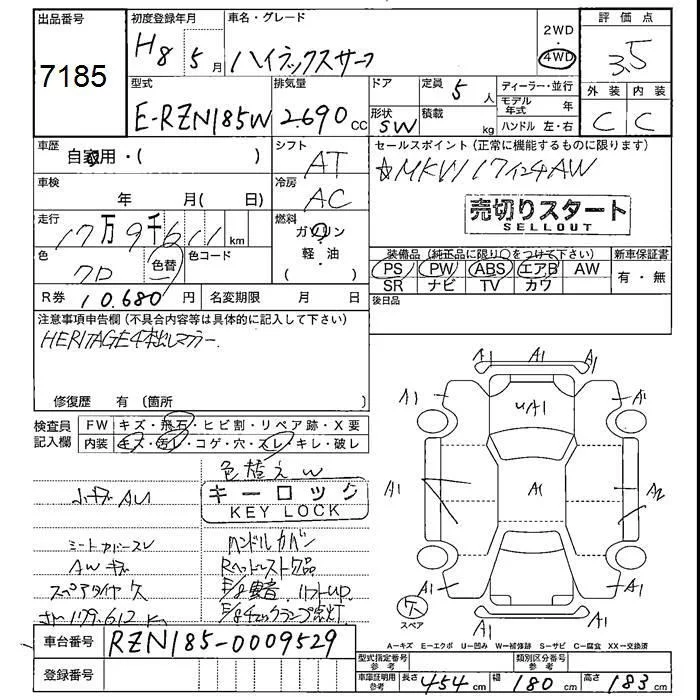 出品番号 初度登録年月 車名・グレード 評価点
7185 H8 5月 ハイラックスサーフ 2WD 4WD 3.5
型式 排気量 ドア 定員 5人 ディーラー・並行 外装 内装
E-RZN185W 2.690cc 形状 SW 積載 kg モデル年式 年 ハンドル 左・右 C C
車歴 自家用・( ) シフト AT セールスポイント(正常に機能するものに限ります)
車検 年 月( 日) 冷房 AC ☆MKW 17インチAW
走行 17万9千611km 燃料 ガソリン・軽・油 ( ) 売切りスタート
SELLOUT
色 色替 色コード 装備品(純正品に限り○をつけて下さい) 新車保証書
PS PW ABS エアB AW 有・無
SR ナビ TV カワ
R券 10.680円 名変期限 月 日 後日品
注意事項申告欄(不具合内容等は具体的に記入して下さい)
HERITAGE4本出しマフラー.
修復歴 有(箇所 )
検査員記入欄 FW キズ・飛石・ヒビ割・リペア跡・X要
内装 キズ・汚レ・コゲ・穴・スレ・キレ・破レ
色替えW
キーロック
KEY LOCK
ハンドルカバー
AWキズ Rヘッドレスト欠品
スペアタイヤ欠 リフトUP
179.612K
車台番号 RZN185-0009529
登録番号
A1 A1 A1
A1 UA1 A1
A1 A1 A2
A1 A1
A1
欠
スペア
A=キズ E=エクボ U=凹み W=補修跡 S=サビ C=腐食 XX=交換済
型式指定番号参考 類別区分番号参考
車庫証明用参考 長さ 454cm 幅 180cm 高さ 183cm